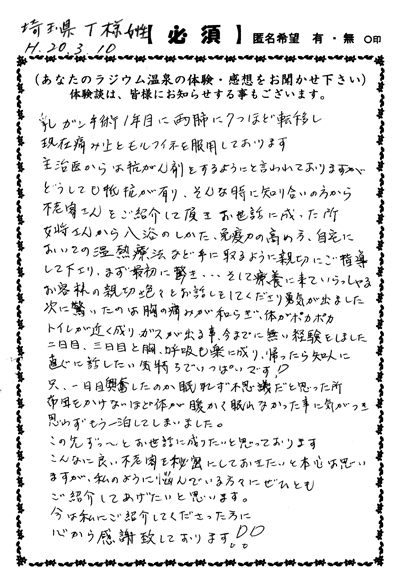 埼玉県 T様 女性
H.20.3.10
【必須】 匿名希望 有・無 ○印
(あなたのラジウム温泉の体験・感想をお聞かせ下さい)
体験談は、皆様にお知らせする事もございます。
乳ガン手術1年目に両肺に7つほど転移し
現在痛み止とモルフィネを服用しております
主治医からは抗がん剤をするようにと言われておりますが
どうしても抵抗が有り、そんな時に知り合いの方から
不老閣さんをご紹介して頂きお世話に成った所
女将さんから入浴のしかた、免疫力の高め方、自宅に
おいての温熱療法など手に取るように親切にご指導
して下さり、まず最初に驚き・・・そして療養に来ていらっしゃる
お客様の親切 色々とお話しをしてくださり勇気が出ました
次に驚いたのは胸の痛みが和らぎ、体がポカポカ
トイレが近く成りガスが出る事、今までに無い経験をしました
二日目、三日目と胸、呼吸も楽に成り、帰ったら知人に
直ぐに話したい気持ちでいっぱいです!!
只、一日目興奮したのか眠れず不思議だと思った所
布団をかけないほど体が暖かく眠れなかった事に気がつき
思わずもう一泊してしまいました。
この先ずっ〜とお世話に成りたいと思っております
こんなに良い不老閣を秘密にしておきたいと本心は思い
ますが、私のように悩んでいる方々にぜひとも
ご紹介してあげたいと思います。
今は私にご紹介してくださった方に
心から感謝致しております!!